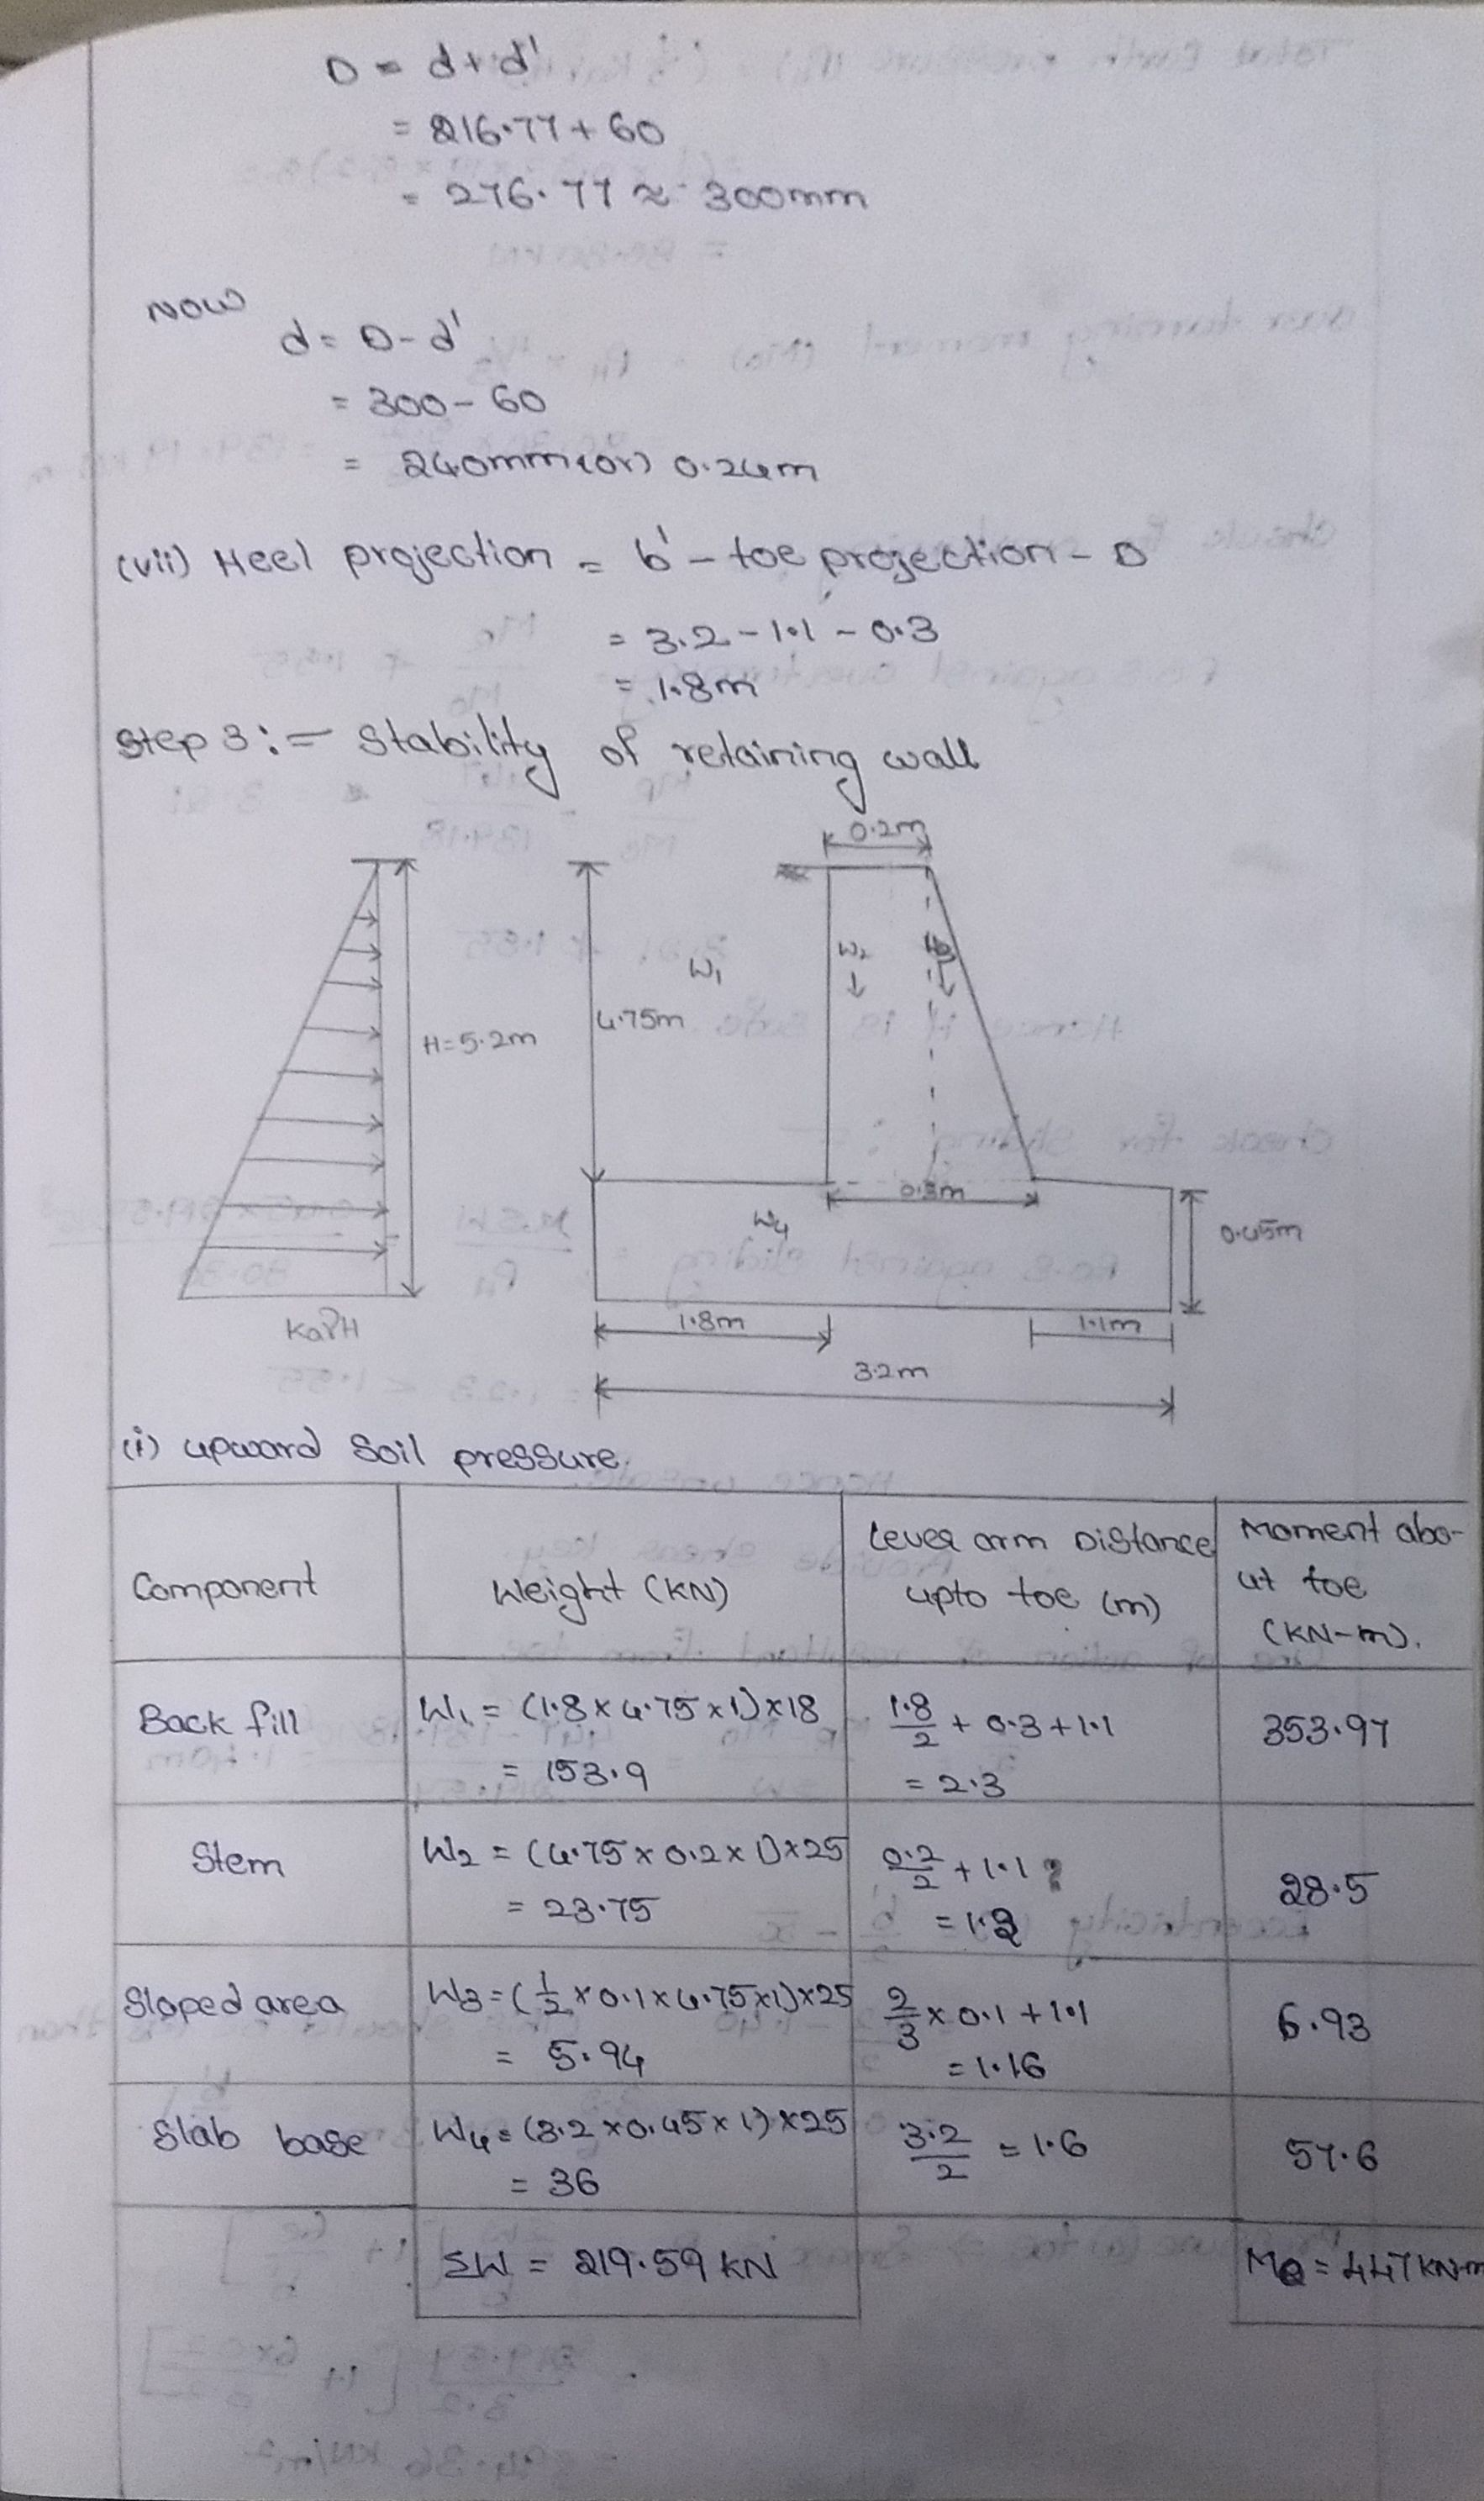 D = d+d'
= 216.77+60
= 276.77 ≈ 300mm
Now
d = D-d'
= 300-60
= 240mm (or) 0.24m
(vii) Heel projection = b' - toe projection - D
= 3.2-1.1-0.3
= 1.8m
Step 3:= Stability of retaining wall
0.2m
W₁
W₂
4.75m
H=5.2m
0.3m
W₄
0.45m
KaγH
1.8m
1.1m
3.2m
(i) upward Soil pressure.
Component
Weight (KN)
Lever arm Distance
upto toe (m)
Moment abo-
ut toe
(KN-m).
Back fill
W₁ = (1.8×4.75×1)×18
= 153.9
1.8/2 + 0.3+1.1
= 2.3
353.97
Stem
W₂ = (4.75×0.2×1)×25
= 23.75
0.2/2 + 1.1
= 1.2
28.5
Sloped area
W₃=(1/2×0.1×4.75×1)×25
= 5.94
2/3×0.1+1.1
= 1.16
6.93
Slab base
W₄=(3.2×0.45×1)×25
= 36
3.2/2 = 1.6
57.6
ΣW = 219.59 KN
MR = 447 KN-m